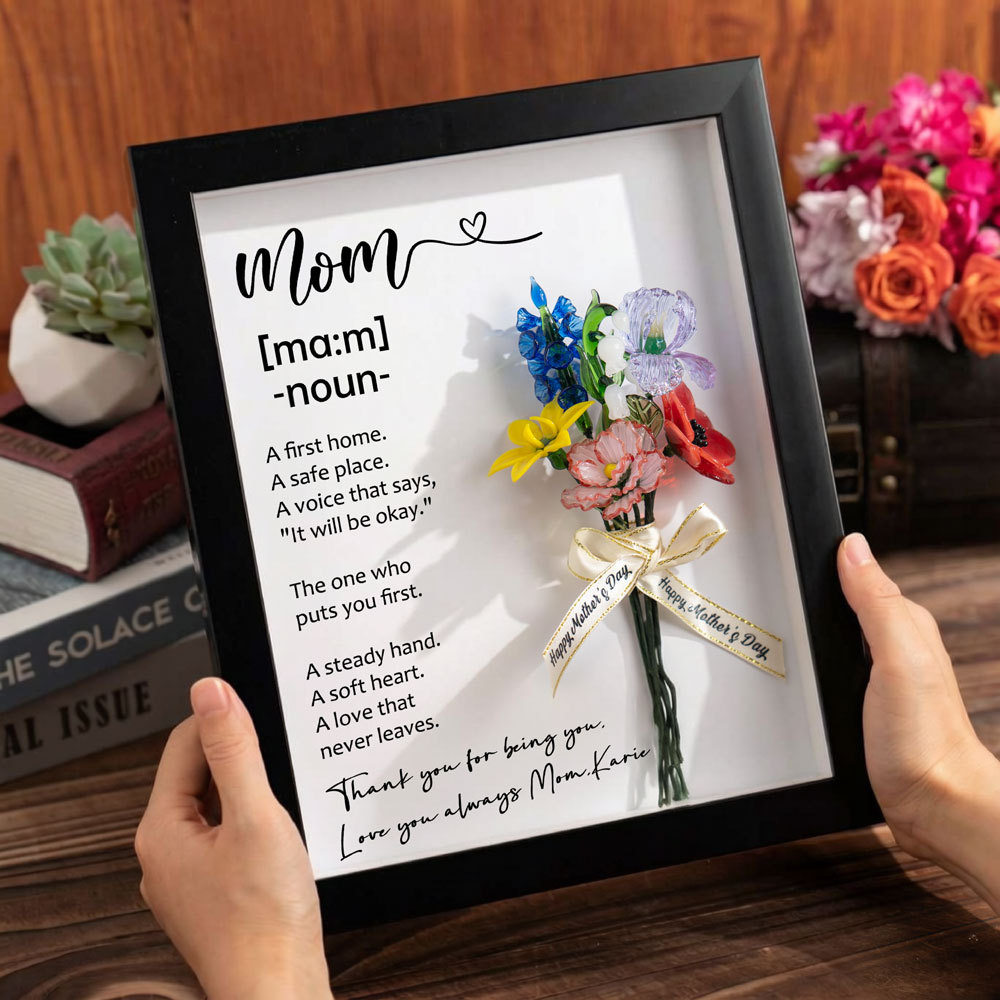 Mom
[ma:m]
-noun-
A first home.
A safe place.
A voice that says,
"It will be okay."
The one who
puts you first.
A steady hand.
A soft heart.
A love that
never leaves.
Thank you for being you.
Love you always Mom.Karie
Happy Mother's Day
Happy Mother's Day
HE SOLACE
AL ISSUE